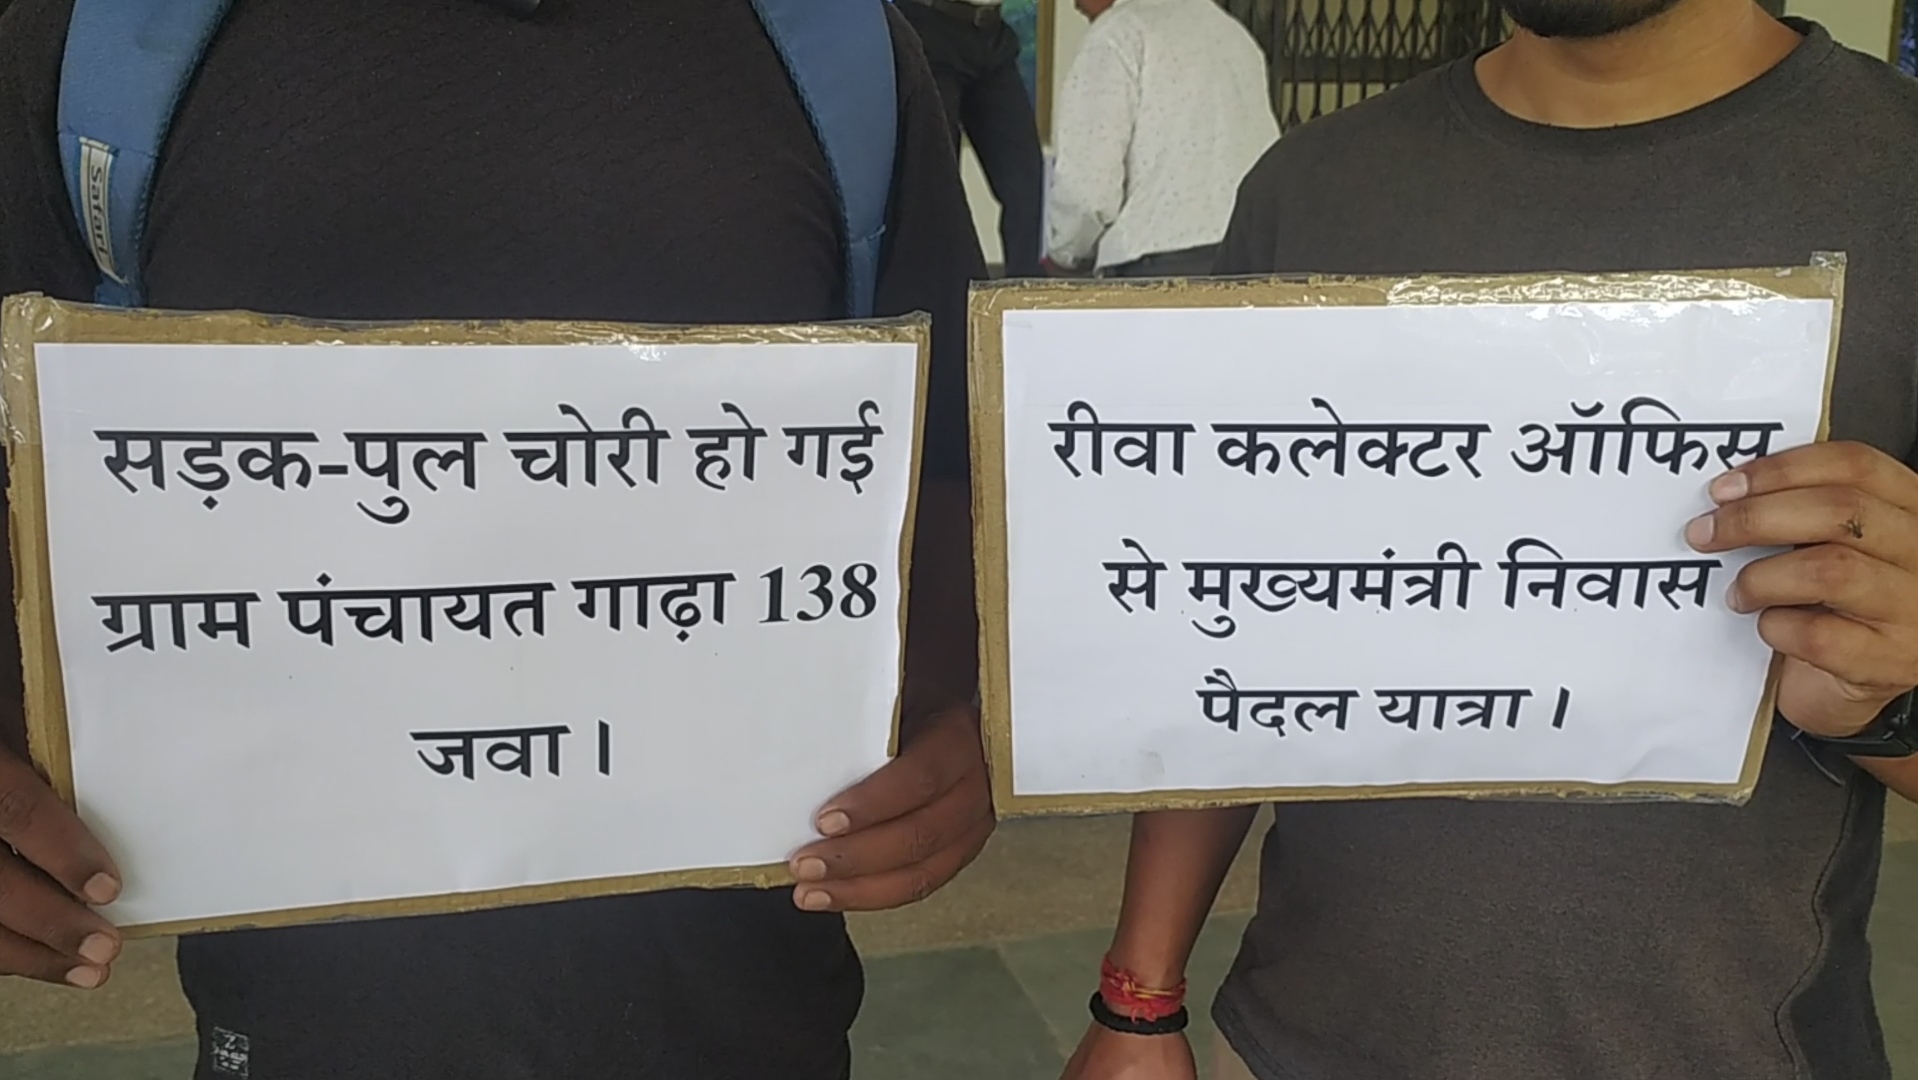 Safari
सड़क-पुल चोरी हो गई
ग्राम पंचायत गाढ़ा 138
जवा ।
रीवा कलेक्टर ऑफिस
से मुख्यमंत्री निवास
पैदल यात्रा ।